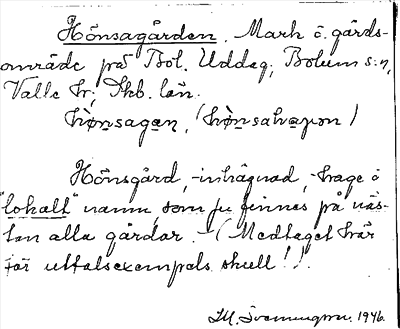 Hönsagården. Mark o. gårds-
område på Bol. Uddag, Bolums:n,
Valle hr; Skb. län.
hònsagan, (hònsahagən)
Hönsgård, -inhägnad, -hage o
"lokalt" namn, som ju finnes på näs-
tan alla gårdar. - (Medtaget här
för uttalsexempels skull!).
1946.